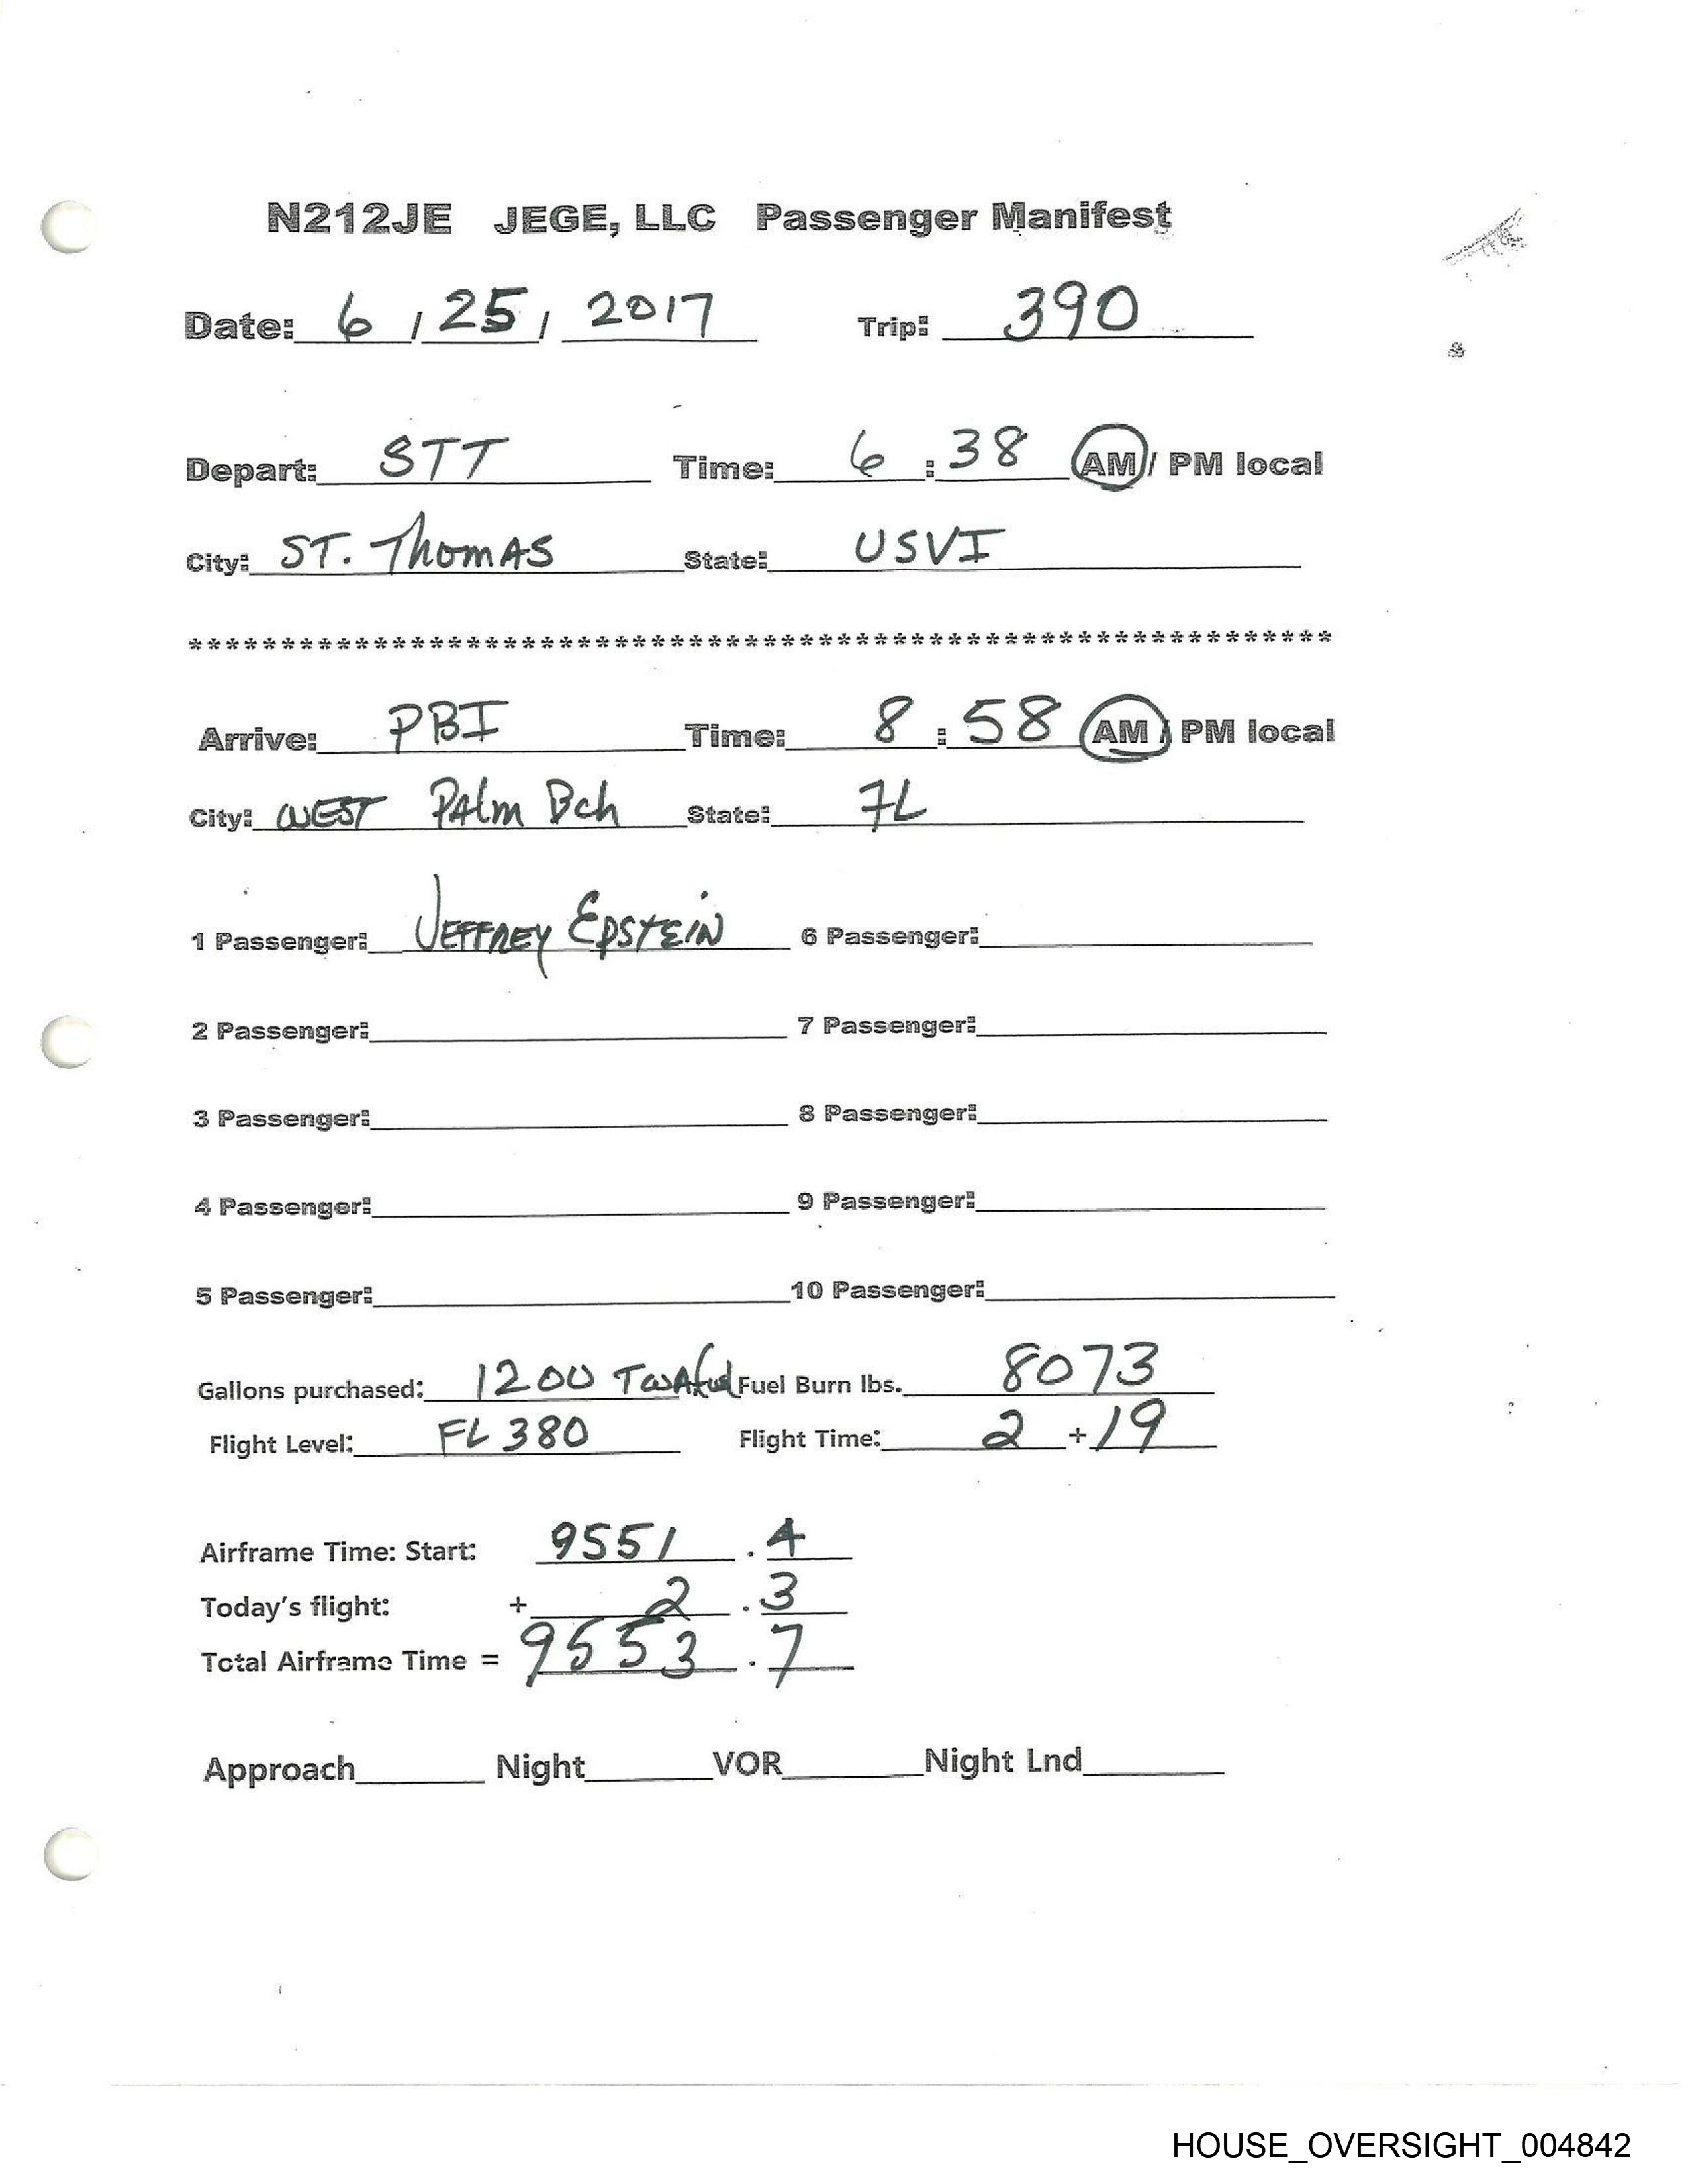 N212JE JEGE, LLC Passenger Manifest
Date: 6 / 25 / 2017 Trip: 390
Depart: STT Time: 6 : 38 AM / PM local
City: ST. ThomAS State: USVI
**************************************************************
Arrive: PBI Time: 8 : 58 AM / PM local
City: WEST PAlm Bch State: FL
1 Passenger: JEFFREY EPSTEIN 6 Passenger:
2 Passenger: 7 Passenger:
3 Passenger: 8 Passenger:
4 Passenger: 9 Passenger:
5 Passenger: 10 Passenger:
Gallons purchased: 1200 Fuel Burn lbs. 8073
Flight Level: FL 380 Flight Time: 2 + 19
Airframe Time: Start: 9551 . 4
Today's flight: + 2 . 3
Total Airframe Time = 9553 . 7
Approach Night VOR Night Lnd
HOUSE_OVERSIGHT_004842